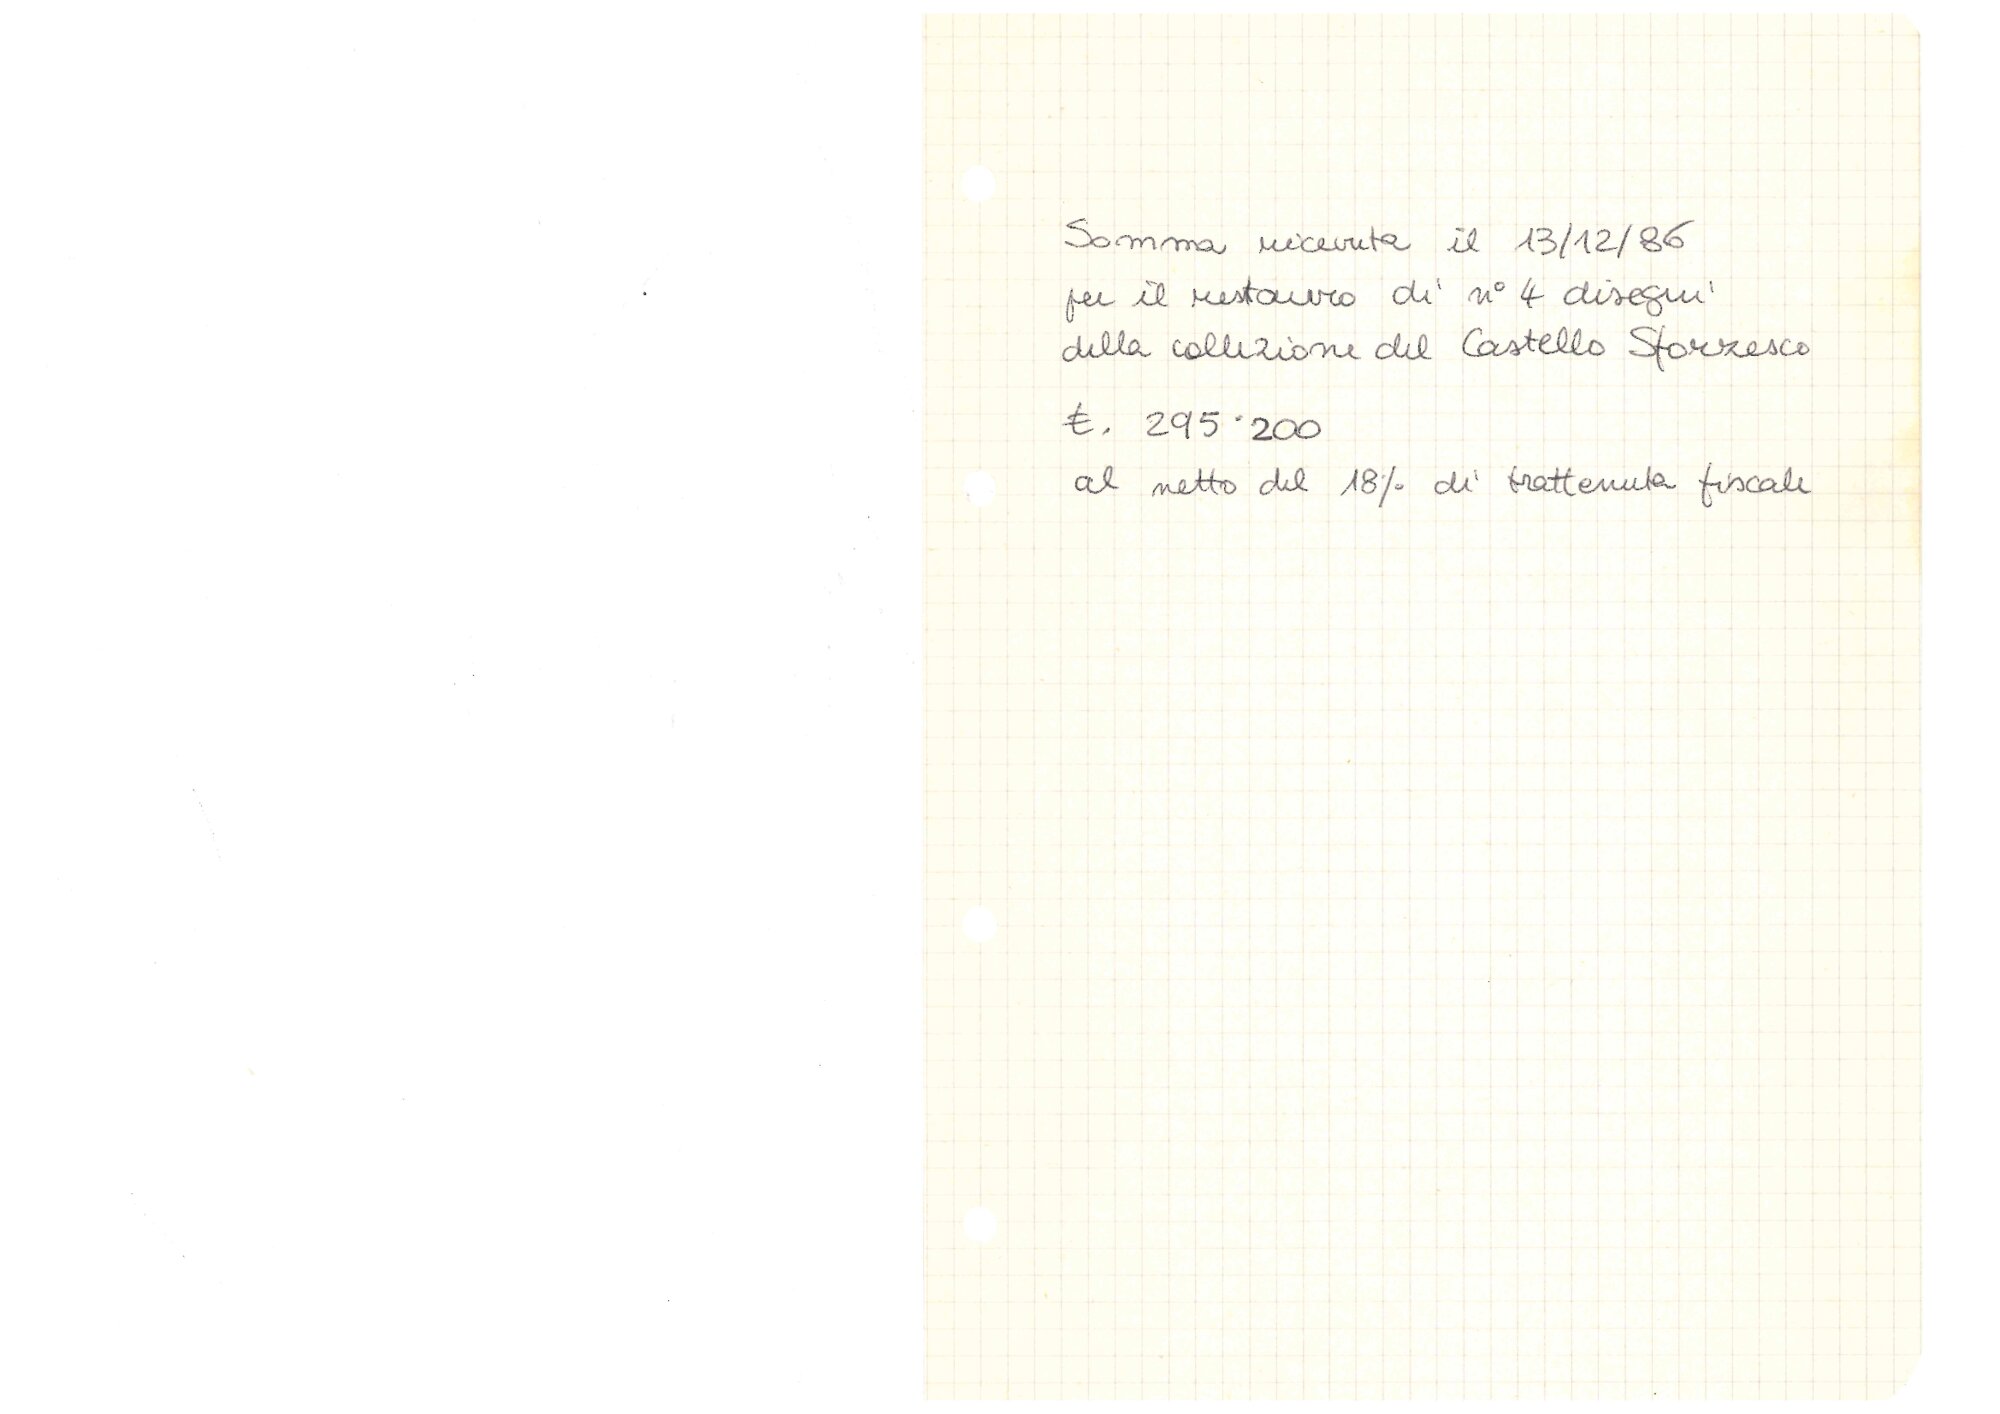 Somma ricevuta il 13/12/86
per il restauro di n° 4 disegni
della collezione del Castello Sforzesco
£. 295.200
al netto del 18% di trattenuta fiscale